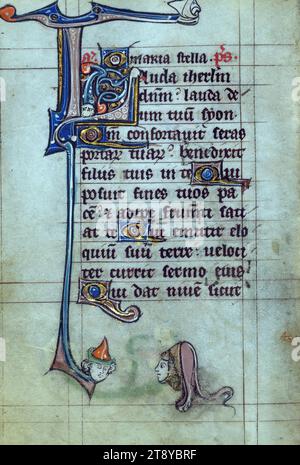 a. O maria stella. ps.
Lauda iherlm
dnm: lauda de
um tuum syon
Qm confortauit seras
portar tuar: benedixit
filiis tuis in te Qui
posuit fines tuos pa
cē: & adipe frumti sati
at te Qui emittit elo
quium suū terre: ueloci
ter currit sermo eius
Qui dat niuē sicut
alamy
2T8YBRF